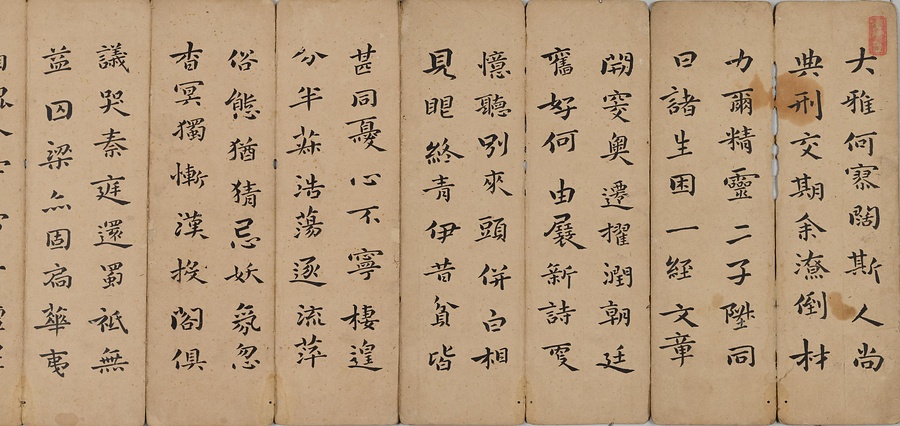 大雅何寥闊斯人尚
典刑交期余潦倒材
力爾精靈二子陞同
日諸生困一經文章
開窔奧遷擢潤朝廷
舊好何由展新詩更
憶聽別來頭併白相
見眼終青伊昔貧皆
甚同憂心不寧棲遑
分半菽浩蕩逐流萍
俗態猶猜忌妖氛忽
杳冥獨慚漢投閣俱
議哭秦庭還蜀祗無
益囚梁亦固扃華夷